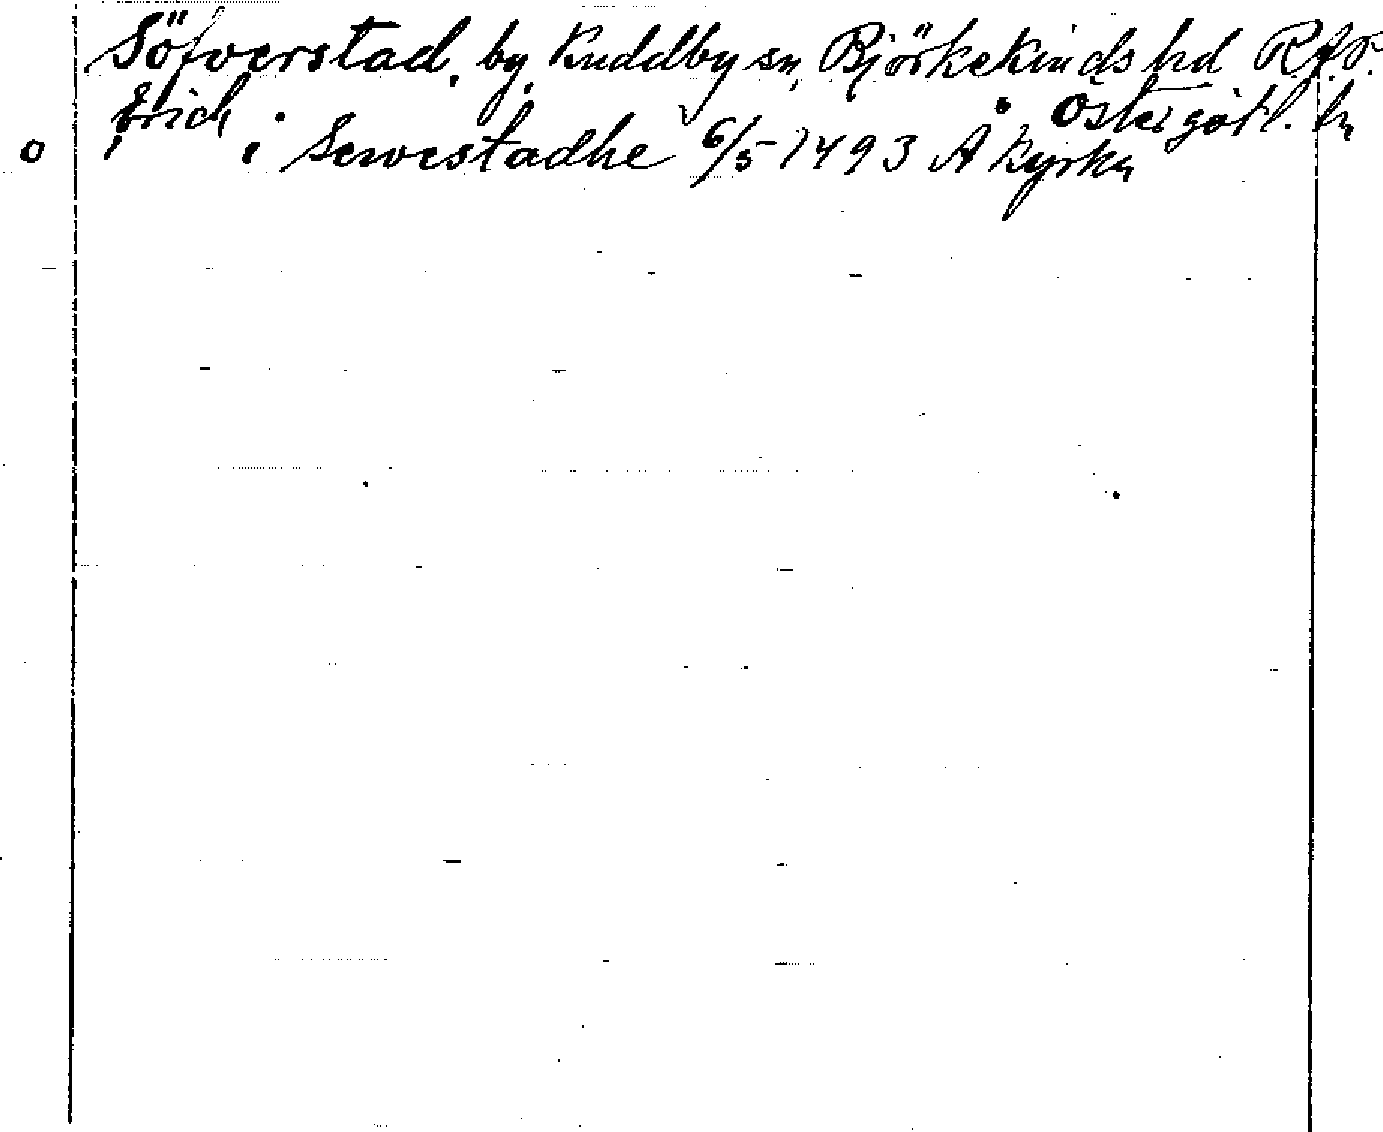 Söfverstad, by, Kuddby sn, Björkekinds hd R.f.r.
Östergötl. ln
Erich i Sewestadhe 6/5 1493 Å kyrka
o